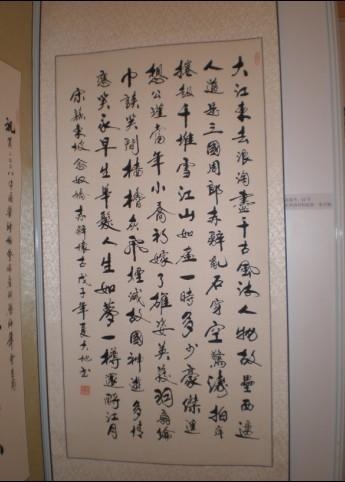 大江東去浪淘盡千古風流人物故壘西邊
人道是三國周郎赤壁亂石穿空驚濤拍岸
捲起千堆雪江山如畫一時多少豪傑遥
想公瑾當年小喬初嫁了雄姿英發羽扇綸
巾談笑間檣櫓灰飛煙滅故國神遊多情
應笑我早生華髮人生如夢一樽還酹江月
宋蘇東坡念奴嬌赤壁懷古戊子年夏大地书
祝賀二〇〇八中國